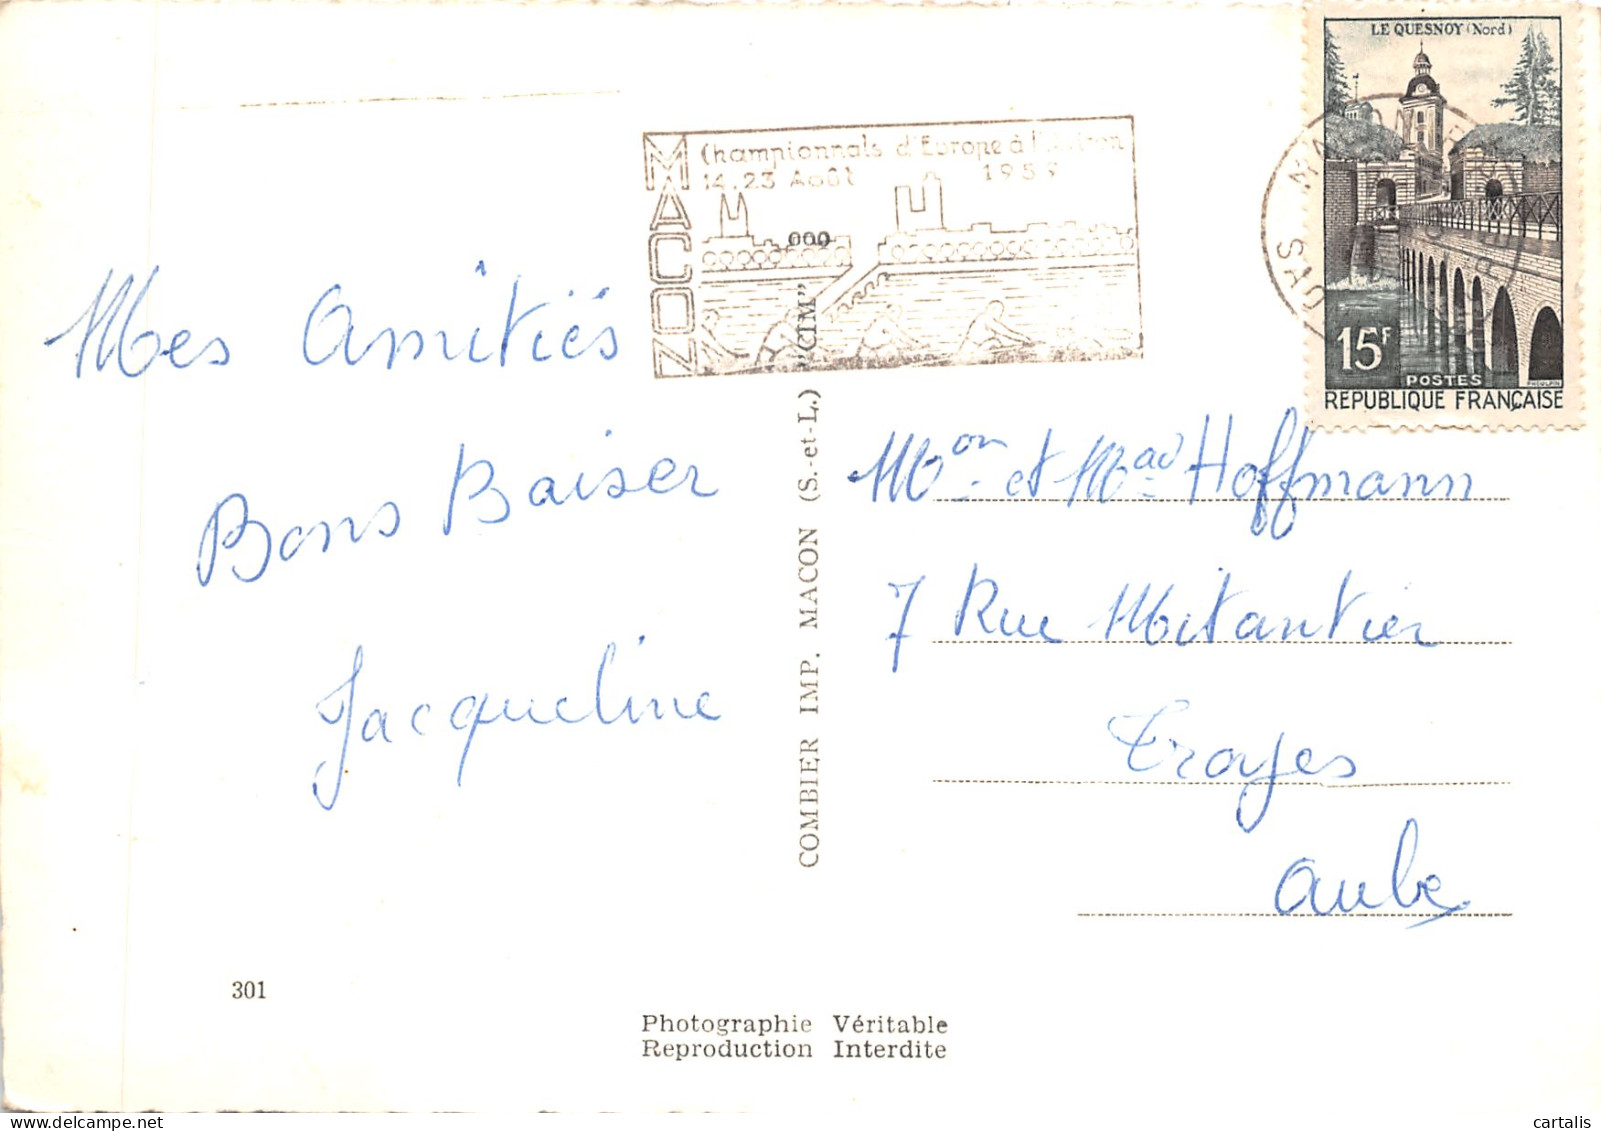 LE QUESNOY (Nord)
MACON
Championnats d'Europe à l'Aviron
14.23 Août 1959
15F
POSTES
RÉPUBLIQUE FRANÇAISE
Mes Amitiés
Bons Baiser
Jacqueline
COMBIER IMP. MACON (S.-et-L.) "CIM"
Mon et Mad Hoffmann
7 Rue Mitantier
Troyes
Aube
301
Photographie Véritable
Reproduction Interdite
cartalis